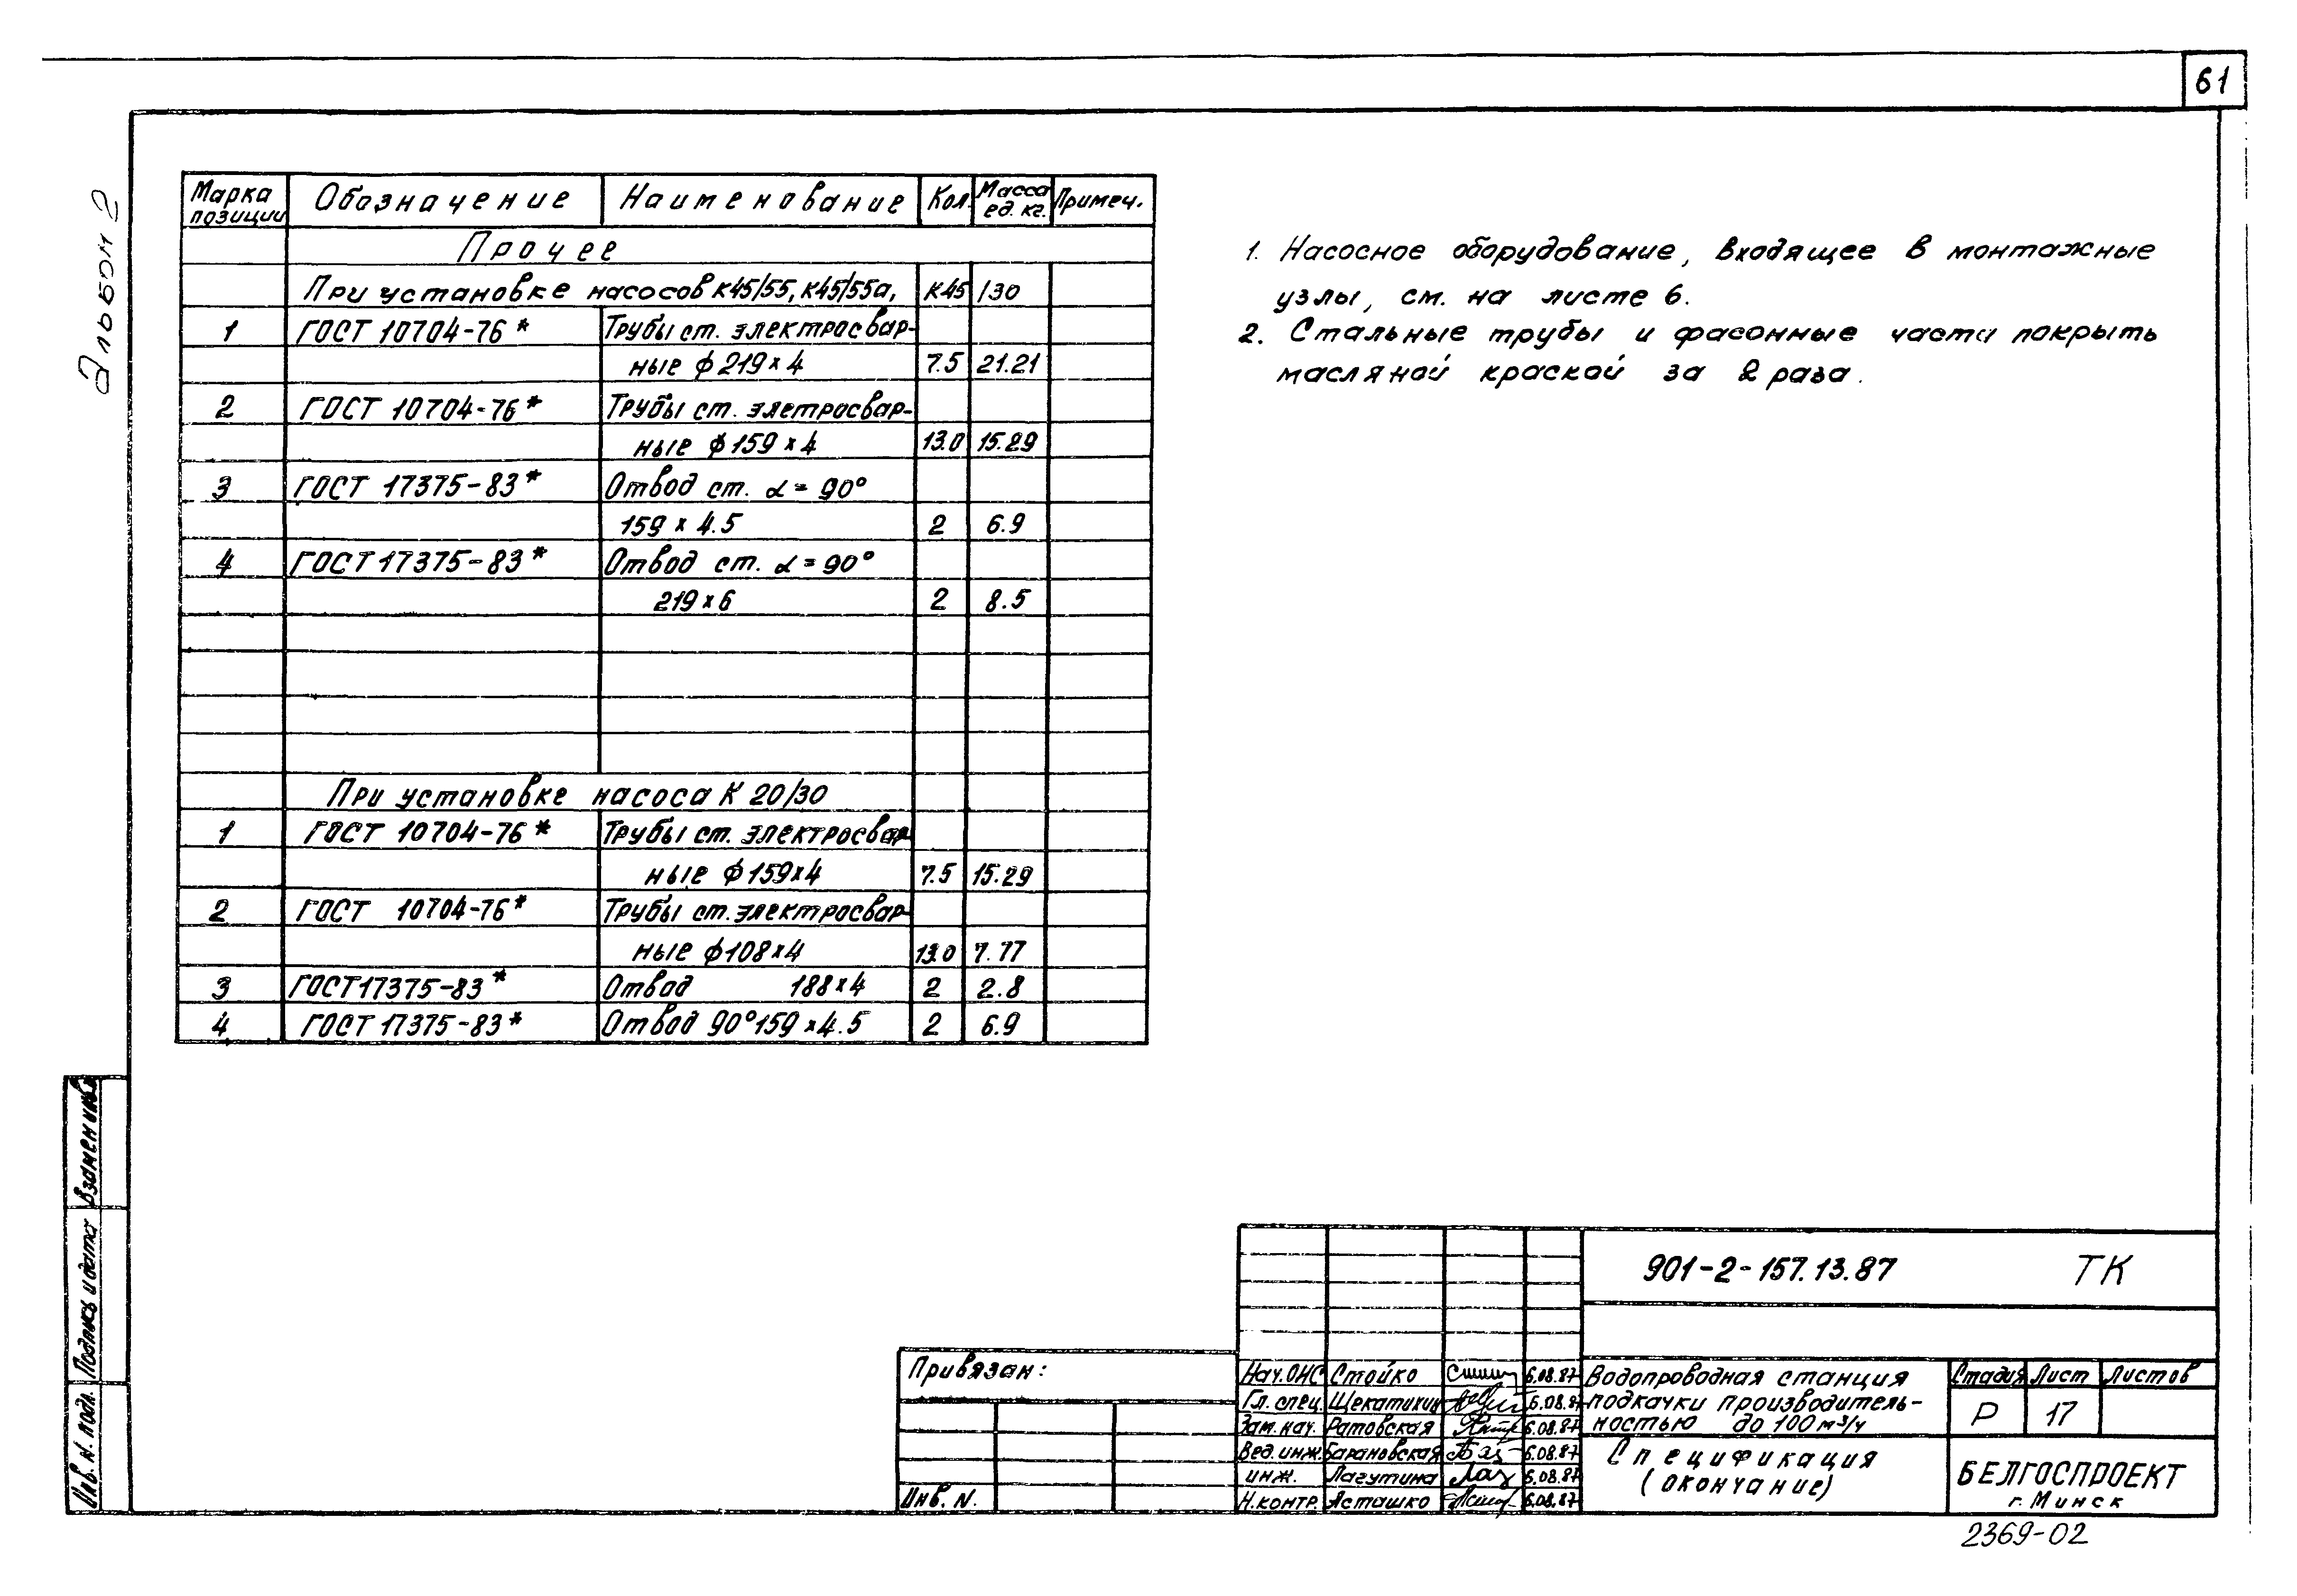 61
Альбом 2
Марка позиции Обозначение Наименование Кол. Масса ед. кг. Примеч.
Прочее
При установке насосов К45/55, К45/55а, К45 /30
1 ГОСТ 10704-76* Трубы ст. электросвар-
ные ф 219 х 4 7.5 21.21
2 ГОСТ 10704-76* Трубы ст. элетросвар-
ные ф 159 х 4 13.0 15.29
3 ГОСТ 17375-83* Отвод ст. α = 90°
159 х 4.5 2 6.9
4 ГОСТ 17375-83* Отвод ст. α = 90°
219 х 6 2 8.5
При установке насоса К 20/30
1 ГОСТ 10704-76* Трубы ст. электросвар-
ные ф 159х4 7.5 15.29
2 ГОСТ 10704-76* Трубы ст. электросвар-
ные ф108х4 13.0 7.77
3 ГОСТ17375-83* Отвод 188х4 2 2.8
4 ГОСТ 17375-83* Отвод 90° 159 х 4.5 2 6.9
1. Насосное оборудование, входящее в монтажные
узлы, см. на листе 6.
2. Стальные трубы и фасонные части покрыть
масляной краской за 2 раза.
Взамен инв.
Подпись и дата
Инв. N. подл.
Привязан:
Инв. N.
901-2-157.13.87 ТК
Нач.ОНС Стойко 6.08.87
Гл. спец. Щекатихин 6.08.87
Зам. нач. Ратовская 6.08.87
Вед. инж. Барановская 6.08.87
инж. Лагутина 6.08.87
Н.контр. Асташко 6.08.87
Водопроводная станция
подкачки производитель-
ностью до 100 м³/ч
Стадия Лист Листов
Р 17
Спецификация
(окончание)
БЕЛГОСПРОЕКТ
г. Минск
2369-02